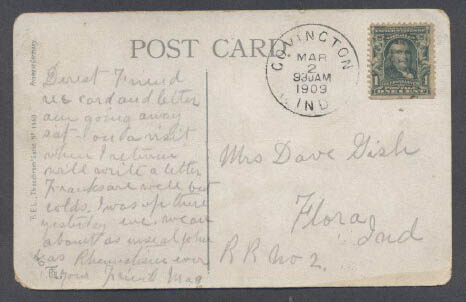 POST CARD
COVINGTON
MAR
2
930AM
1909
IND.
ONE CENT
Derest Friend
rec card and letter
am going away
sat- on a visit
when I return
will write a letter
Franks are well but
colds. I was up there
yesterday eve. we are
about as usual John
as Rheumatism ever
Your Friend Mag
Mrs Dave Gish
Flora
Ind
R R No 2.